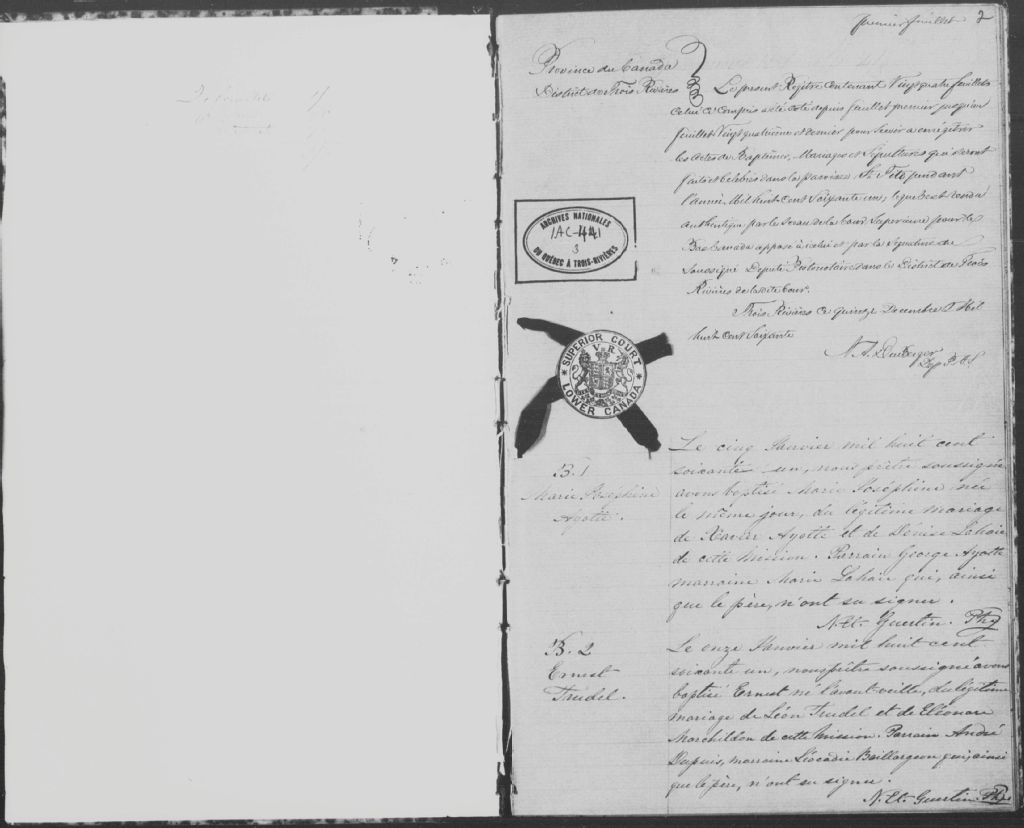 premier feuillet 2
Province du Canada
District de Trois Rivières
Le présent Régitre contenant Vingt quatre feuillets
celui ci compris a été coté depuis feuillet premier jusqu'au
feuillet Vingt quatrième et dernier pour servir a enrégitrer
les actes de Baptêmes, Mariages et Sépultures qui seront
faits et célébrés dans la paroisse St Tite pendant
l'année Mil huit cent Soixante un, lequel est rendu
authentique par le sceau de la Cour Supérieure pour le
Bas Canada apposé à icelui et par la signature du
Soussigné Député Protonotaire dans le District de Trois
Rivières de la dite Cour.
Trois Rivières ce quinze Décembre Mil
huit cent Soixante
Dep P.C.S.
ARCHIVES NATIONALES
IAC-441
3
DU QUÉBEC À TROIS-RIVIÈRES
SUPERIOR COURT
V R
LOWER CANADA
B. 1
Marie Joséphine
Ayotte.
Le cinq Janvier mil huit cent
soixante un, nous prêtre soussigné
avons baptisé Marie Joséphine née
le même jour, du légitime mariage
de Xavier Ayotte et de Dénise Lahaie
de cette mission. Parrain George Ayotte
marraine Marie Lahaie qui, ainsi
que le père, n'ont su signer.
N. Et. Guertin. Ptre
B. 2
Ernest
Trudel.
Le onze Janvier mil huit cent
soixante un, nous prêtre soussigné avons
baptisé Ernest né l'avant veille, du légitime
mariage de Léon Trudel et de Eléonore
Marchildon de cette mission. Parrain André
Dupuis, marraine Léocadie Baillargeon qui, ainsi
que le père, n'ont su signer.
N. Et. Guertin. Ptre